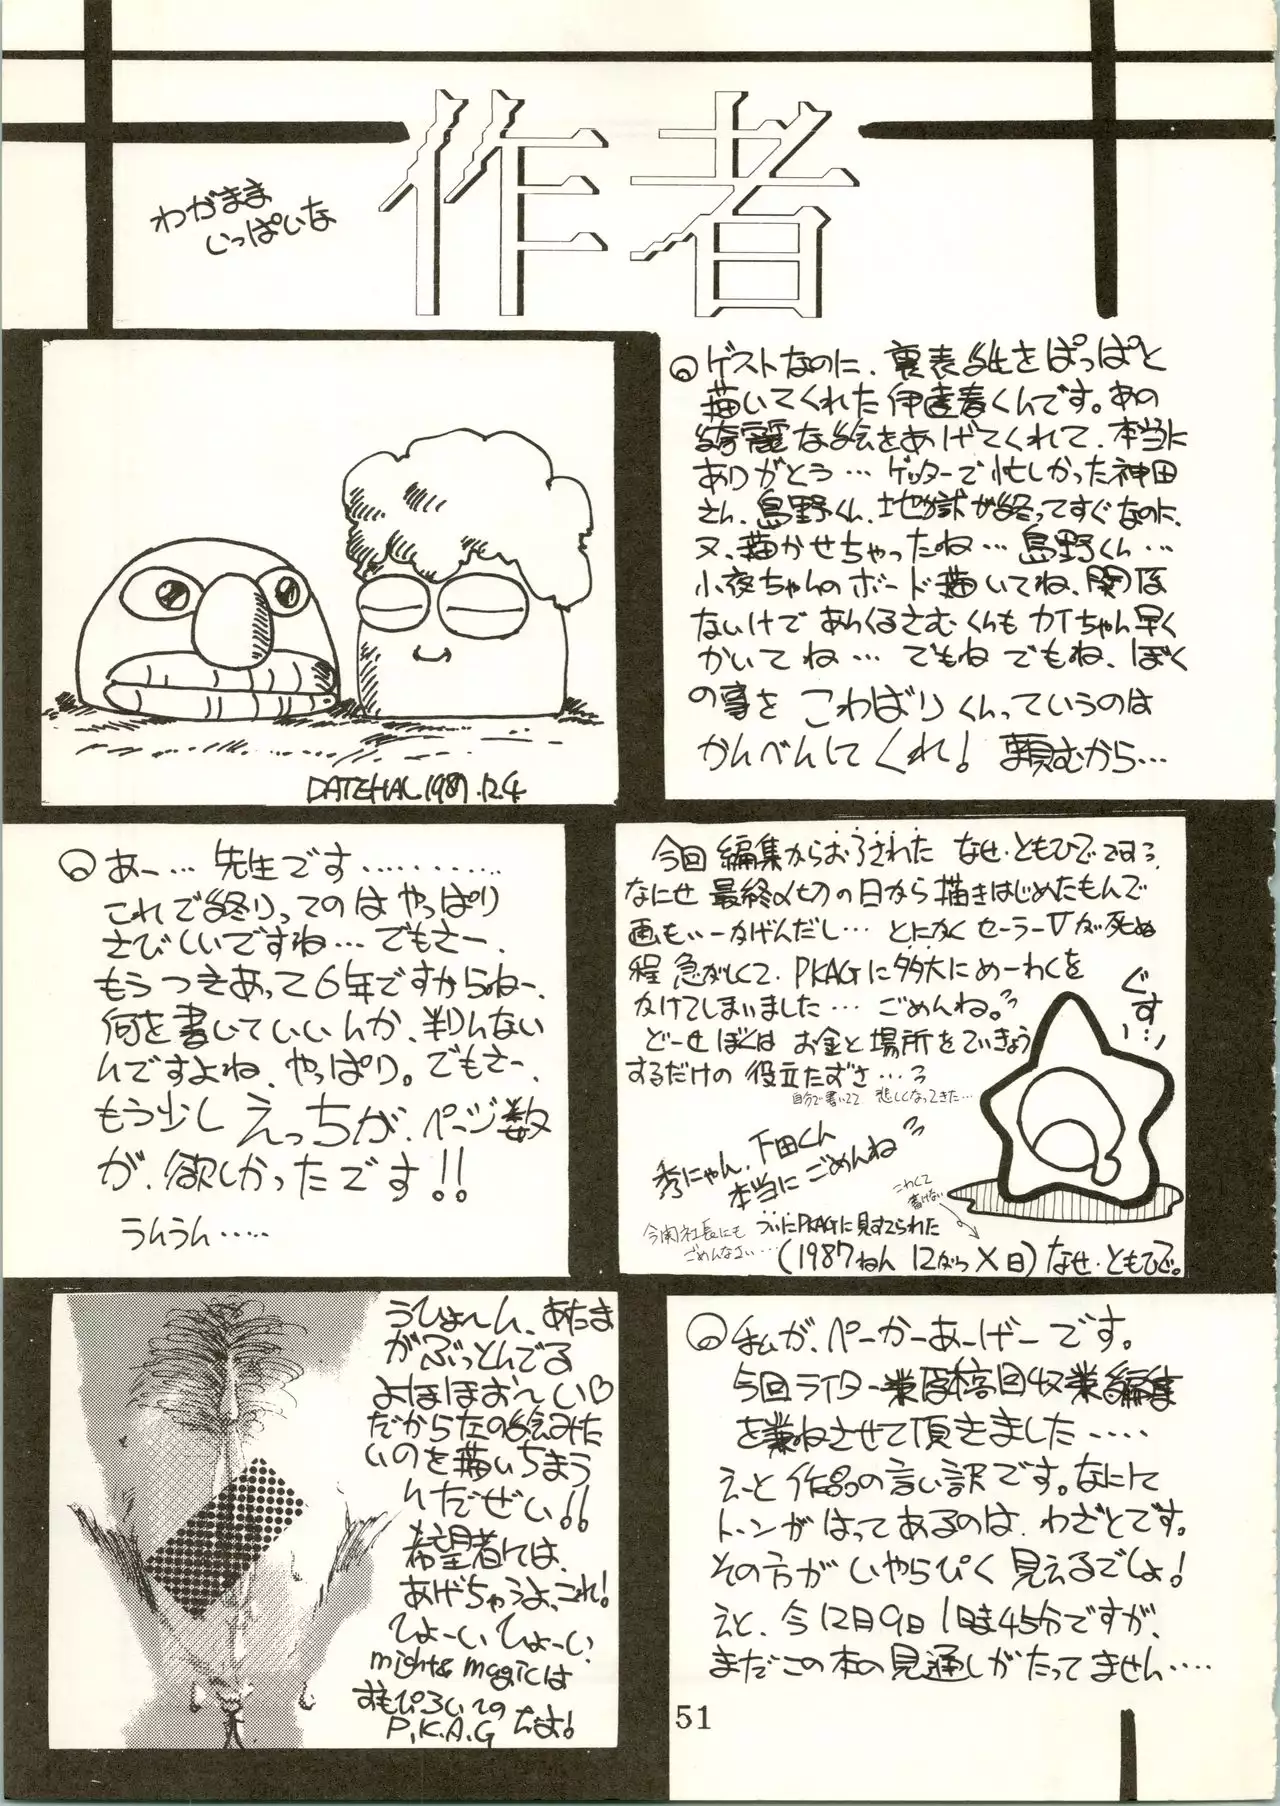 作者
わがまま
いっぱいな
ゲストなのに、裏表紙をぱっぱと
描いてくれた伊達春くんです。あの
綺麗な絵をあげてくれて、本当に
ありがとう… ゲッターで忙しかった神田
さん、島野くん、地獄が終ってすぐなのに、
又、描かせちゃったね… 島野くん…
小夜ちゃんのボード描いてね、関係
ないけで あんくるさむくんも カイちゃん早く
かいてね… でもね でもね、ぼく
の事を こわばりくんっていうのは
かんべんしてくれ! 頼むから…
DATEHAL 1987.12.4
あー… 先生です………
これで終りってのは やっぱり
さびしいですね… でもさー、
もう つきあって6年ですからねー、
何を書いていいんか、判んない
んですよね、やっぱり。でもさー、
もう少し えっちが、ページ数
が、欲しかったです!!
うんうん……
今回 編集からおろされた なせ・ともひで です。
なにせ 最終〆切の日から描きはじめたもんで
画もいーかげんだし… とにかく セーラーVが死ぬ
程 急がしくて、PKAGに多大にめーわくを
かけてしまいました… ごめんね。
どーせ ぼくは お金と場所をていきょう
するだけの 役立たずさ…
自分で書いてて 悲しくなってきた…
ぐす…
秀にゃん、下田くん
本当に ごめんね
こわくて
書けない
今関社長にも
ごめんなさい…
ついにPKAGに見すてられた
(1987ねん 12がつ X日) なせ・ともひで。
うひょ〜ん、あたま
がぶっとんでる
よほほお〜い♡
だから左の絵みた
いのを描いちまう
んだぜい!!
希望者には、
あげちゃうよ、これ!
ひょーい ひょーい、
might & magicは
おもひろいての
P.K.A.G だよ!
私が、ぺーかーあーげーです。
今回ライター業原稿回収業編集
を兼ねさせて頂きました……
えーと 作品の言い訳です。なにして
トーンがはってあるのは、わざとです。
その方が いやらぴく 見えるでしょ!
えと、今12月9日 1時45分ですが、
まだこの本の見通しがたってません……
51